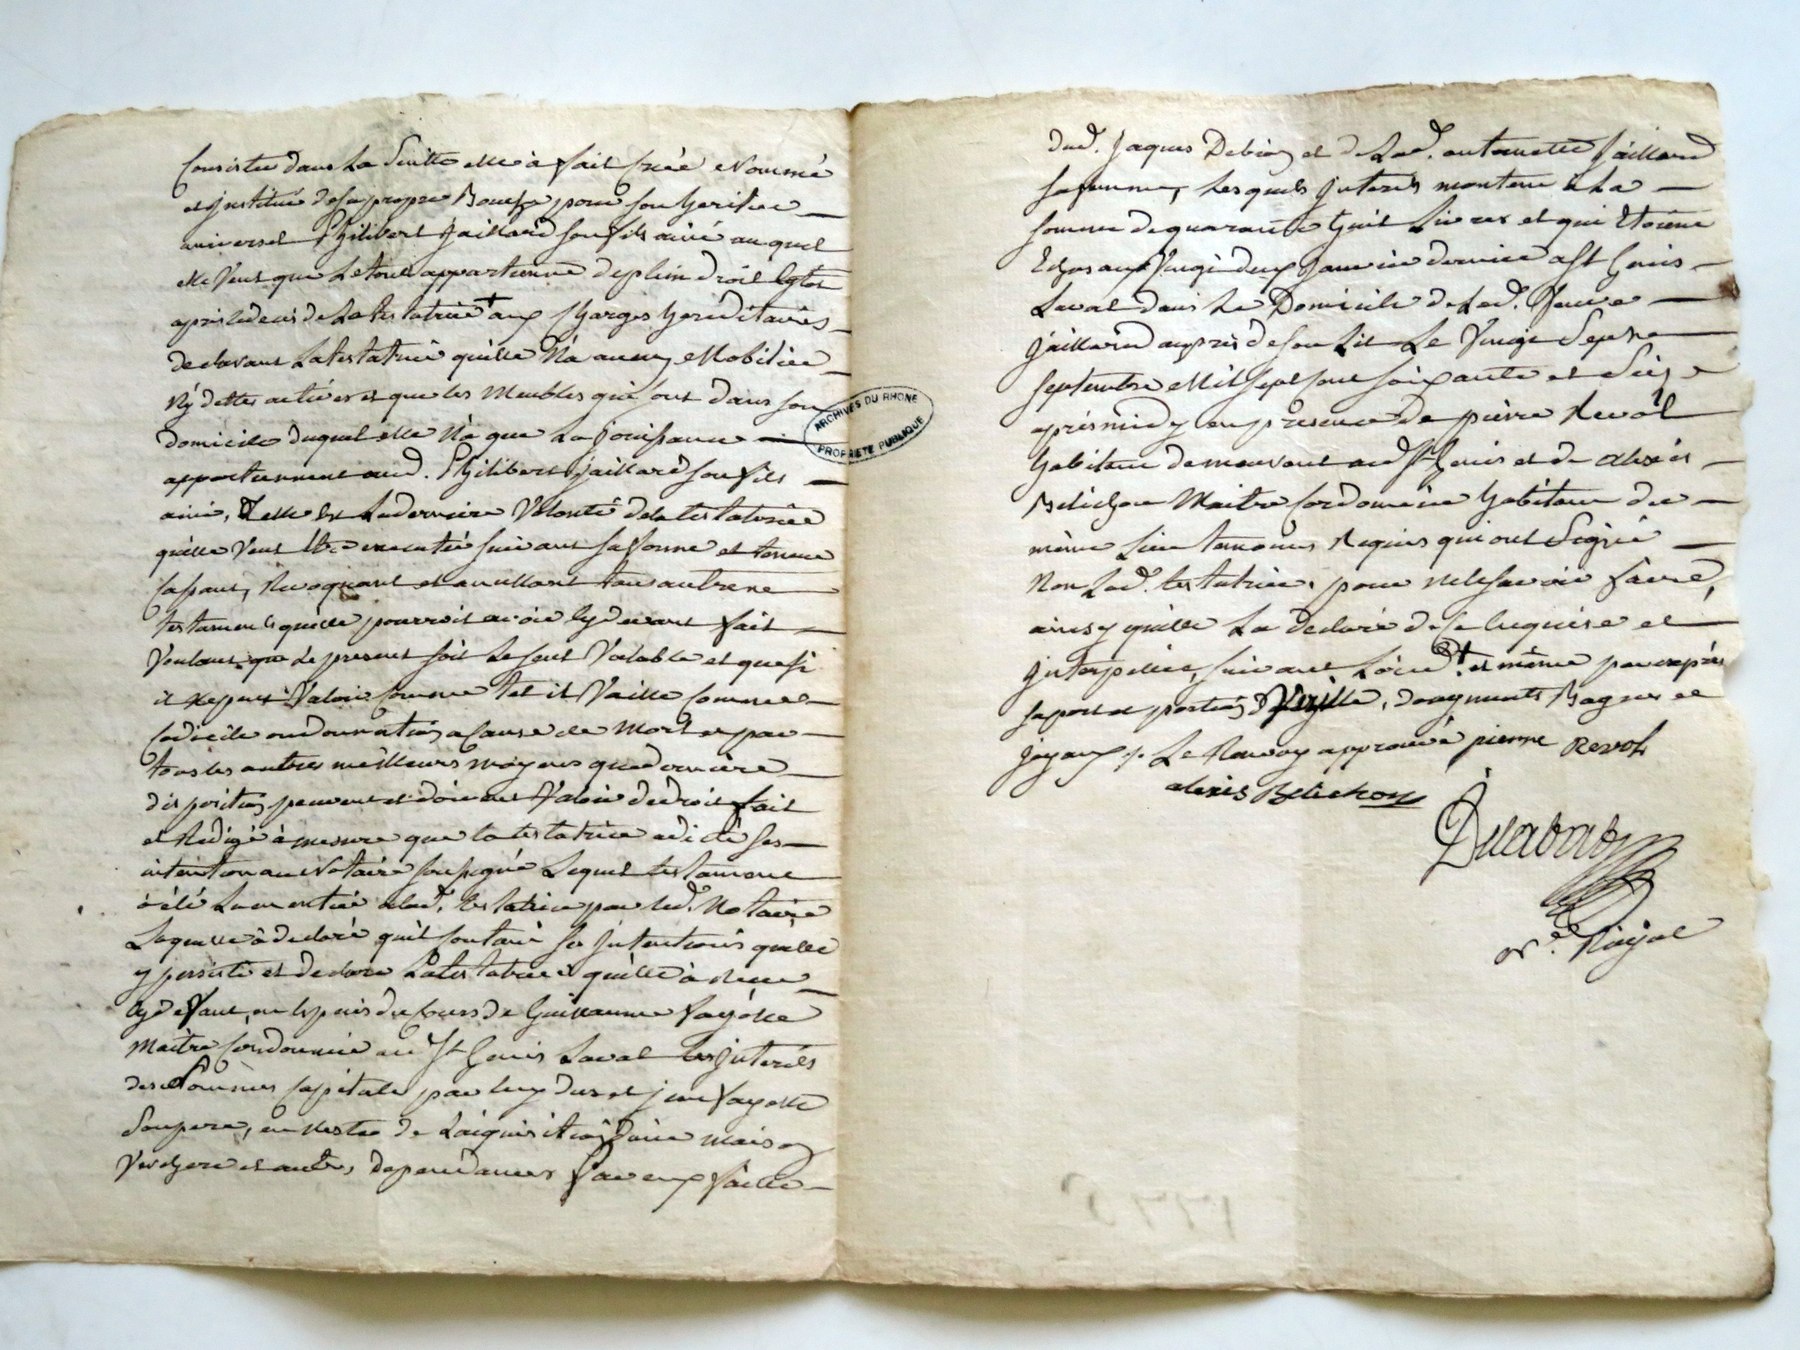 Consister dans la suitte elle à fait Créé et Nommé
et institué de sa propre Bouche pour son heritier
universel Philibert Jaillard son fils ainé auquel
elle Veut que le tout appartienne de plein droit
après le deces de la testatrice + aux Charges hereditaires
declarant la testatrice quelle N'a aucun Mobilier
Ny dettes actives et que les Meubles qui sont dans son
domicile duquel elle N'a que la jouissance
appartiennent aud. Philibert Jaillard son fils
ainé, Telle est la derniere Volonté de la testatrice
quelle Veut être executée suivant sa forme et teneur
Cassant, Revoquant et annullant tou autre
testament quelle pourroit avoir cy devant fait
Voulant que le present soit le seul Valable et que si
il ne peut Valoir Comme tel il Vaille Comme
Codicile ou donnation a Cause de Mort et par
tous les autres meilleurs moyens que derniere
disposition peuvent et doivent Valoir de droit fait
et Redigé à mesure que la testatrice a dicté ses
intention au Notaire soussigné Lequel testament
à été à lad. testatrice par led. Notaire
Laquelle à declaré quil Contient ses Intentions quelle
y persiste et declare la testatrice quelle à Receu
cy devant, en especes du Cours de Guillaume fayolle
Maitre Cordonnier aud St Genis Laval les Interets
des Sommes Capitales par luy dues et fayolle
Son pere, en Reste de L'aiquisition d'une maison
Verchere et autres dependances
dud. Jaques Debion et de Lad. antoinette Jaillard
sa femme, Lesquels Interets montent à la
somme de quarante huit Livres et qui Etoient
Echos aux Vingt deux Janvier dernier a St Genis
Laval dans le Domicile de Lad. Veuve
Jaillard aupres de son Lit Le Vingt Sept
septembre Mil sept Cent soixante et Seize
après midy en presence de pierre Revol
habitant demeurant aud St Genis et de alexis
Belichon Maitre Cordonnier habitant du
même Lieu temoins Requis qui ont Signé
Non Lad. testatrice, pour ne le savoir faire,
ainsy quelle La declaré de ce Enquise et
Interpellée, suivant L'ord. + et même par exprés
sa part et portion, d'augments Bagues et
joyaux /. Le Renvoy approuvé pierre Revol
alexis Belichon
Nre. Royal
ARCHIVES DU RHONE
PROPRIETE PUBLIQUE